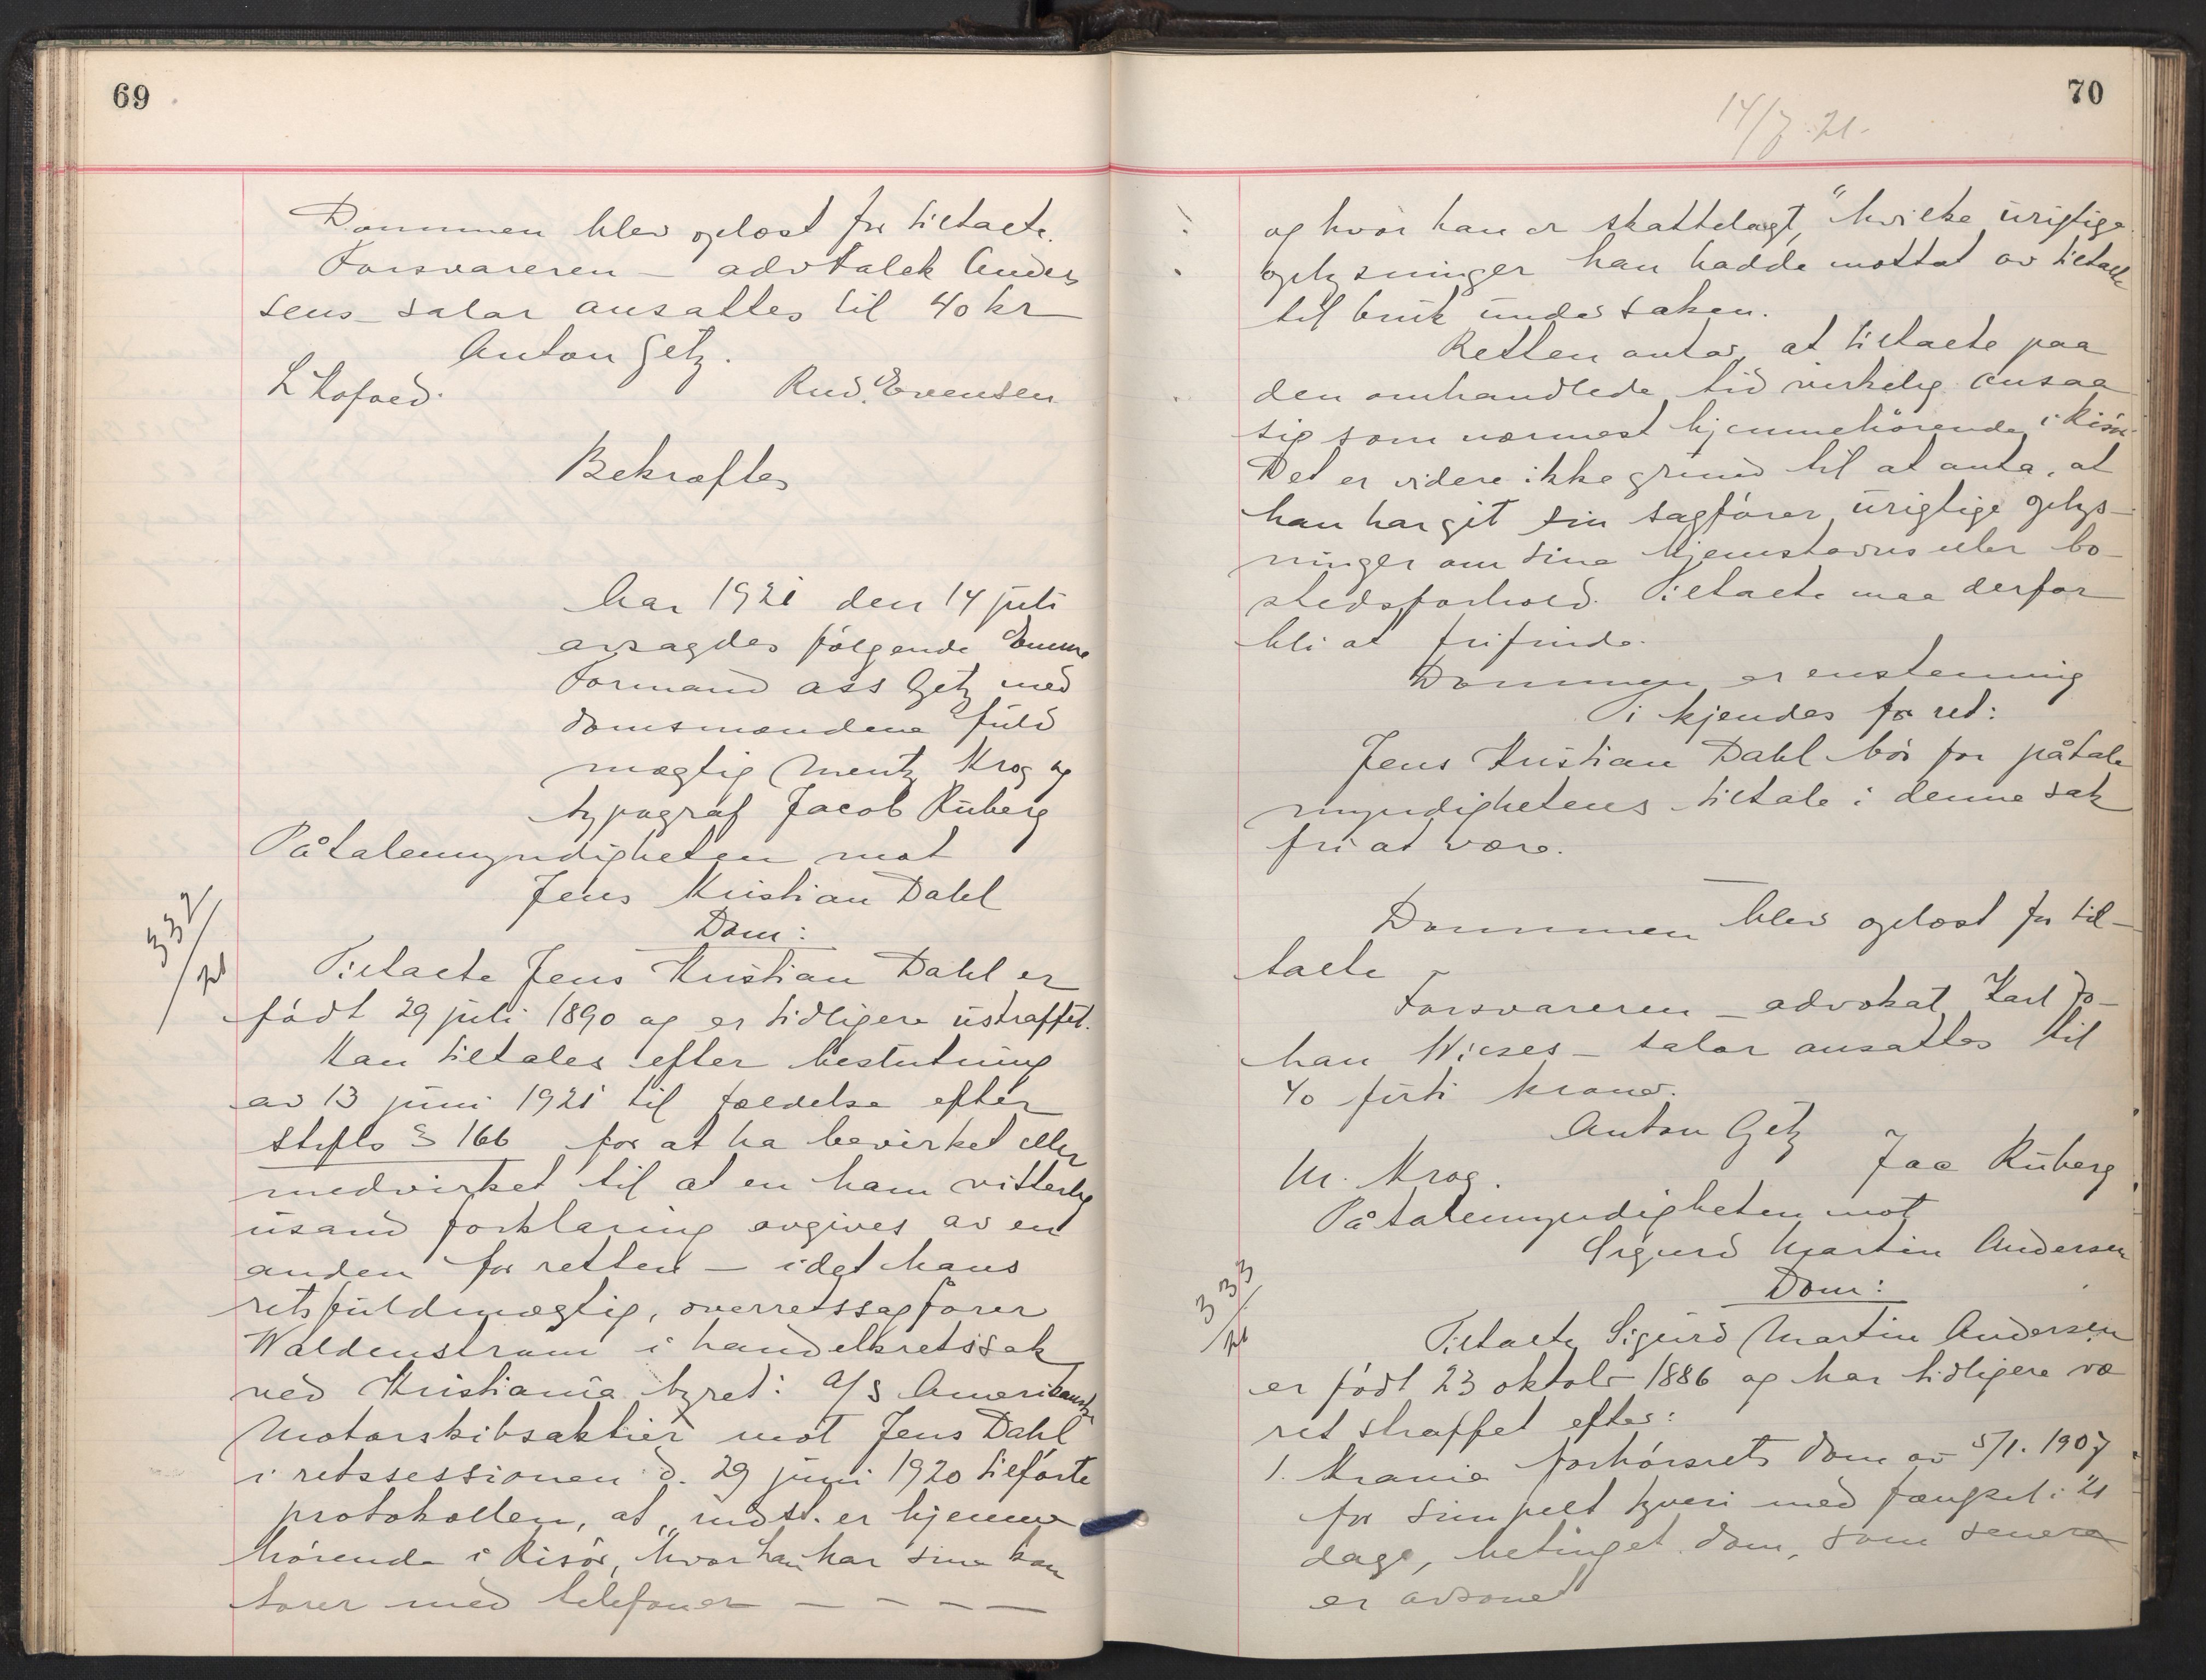 69
Dommen blev oplæst for tiltalte.
Forsvareren – advokat Ander
sens – salar ansattes til 40 kr
Anton Getz.
L Kofoed. Rud. Evensen
Bekræftes
Aar 1921 den 14 juli
avsagdes følgende Emne
Formand ass Getz med
domsmændene fuld
mægtig Mentz Krog og
typograf Jacob Ruberg
Påtalemyndigheten mot
Jens Kristian Dahl
332/21
Dom:
Tiltalte Jens Kristian Dahl er
født 29 juli 1890 og er tidligere ustraffet.
Han tiltales efter beslutning
av 13 juni 1921 til fældelse efter
strfls § 166 for at ha bevirket eller
medvirket til at en ham vitterlig
usand forklaring avgives av en
anden for retten – idet hans
retsfuldmægtig, overretssagfører
Waldenstrøm i handelsretssak
ved Kristiania byret: A/S Amerikansk
Motorskibsaktier mot Jens Dahl
i retssessionen d. 29 juni 1920 tilførte
protokollen, at „indst. er hjemme
hørende i Risør, hvor han har sine kon
torer med telefoner – – – –
70
14/7.21.
og hvor han er skattelagt," hvilke urigtige
oplysninger han hadde mottat av tiltalte
til bruk under saken.
Retten antar, at tiltalte paa
den omhandlede tid virkelig ansaa
sig som nærmest hjemmehørende i Risør.
Det er videre ikke grund til at anta, at
han har git sin sagfører urigtige oplys-
ninger om sine hjemstavns eller bo-
stedsforhold. Tiltalte maa derfor
bli at frifinde.
Dommen er enstemmig
Ti kjendes for ret:
Jens Kristian Dahl bør for påtale
myndighetens tiltale i denne sak
fri at være.
Dommen blev oplæst for til-
talte
Forsvareren – advokat Karl Jo-
han Wieses – salar ansattes til
40 førti kroner.
Anton Getz
M. Krog. Jac Ruberg
Påtalemyndigheten mot
Sigurd Martin Andersen
333/21
Dom:
Tiltalte Sigurd Martin Andersen
er født 23 oktobr 1886 og har tidligere væ
ret straffet efter:
1. Krania forhørsrets dom av 5/1. 1907
for simpelt tyveri med fængsel i 21
dage, betinget dom, som senere
er avsonet